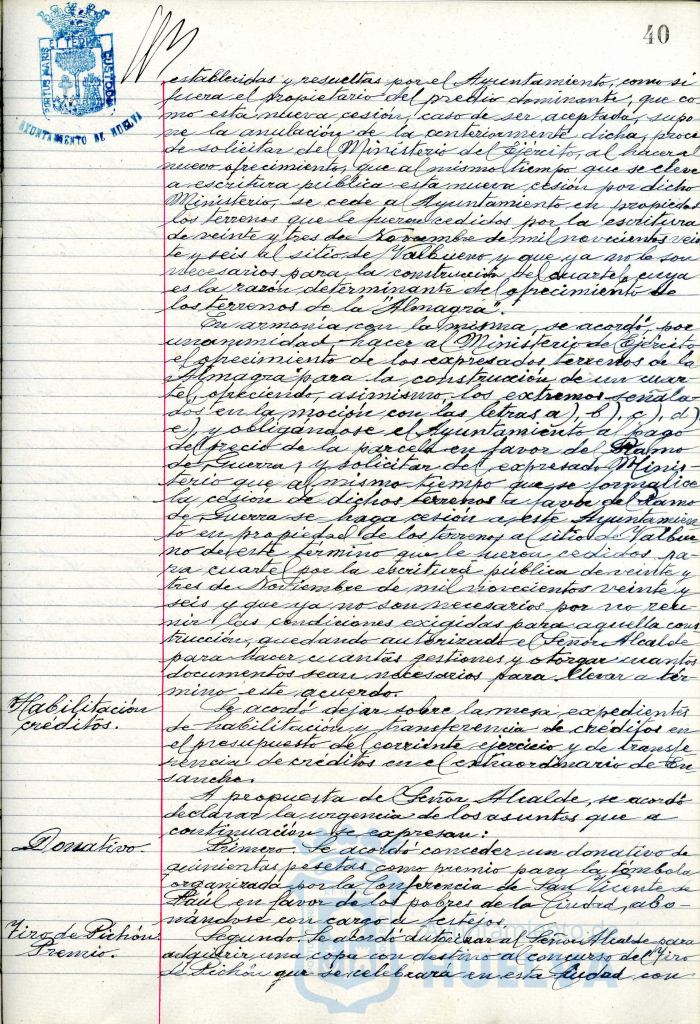 40
PORTUS MARIS ET TERRAE CUSTODIA
AYUNTAMIENTO DE HUELVA
establecidas y resueltas por el Ayuntamiento, como si
fuera el propietario del predio dominante, que co
mo esta nueva cesión, caso de ser aceptada, supo
ne la anulación de la anteriormente dicha, proce
de solicitar del Ministerio del Ejército, al hacer el
nuevo ofrecimiento, que al mismo tiempo que se eleve
a escritura pública esta nueva cesión por dicho
Ministerio, se cede al Ayuntamiento en propiedad
los terrenos que le fueron cedidos por la escritura
de veinte y tres de Noviembre de mil novecientos vein
te y seis al sitio de Valbueno y que ya no le son
necesarios para la construcción del cuartel cuya
es la razón determinante del ofrecimiento de
los terrenos de la "Almagra".
En armonía con la misma, se acordó, por
unanimidad hacer al Ministerio de Ejército
el ofrecimiento de los expresados terrenos de la
"Almagra" para la construcción de un cuar
tel, ofreciendo, asimismo, los extremos señala
dos en la moción con las letras a), b), c), d)
e) y obligándose el Ayuntamiento a pago
del precio de la parcela en favor del Ramo
de Guerra, y solicitar del expresado Minis
terio que al mismo tiempo que se formalice
la cesión de dichos terrenos a favor del Ramo
de Guerra se haga cesión a este Ayuntamien
to en propiedad de los terrenos al sitio de Valbue
no de este término que le fueron cedidos pa
ra cuartel por la escritura pública de veinte y
tres de Noviembre de mil novecientos veinte y
seis y que ya no son necesarios por no reu
nir las condiciones exigidas para aquella cons
trucción, quedando autorizado el Señor Alcalde
para hacer cuantas gestiones y otorgar cuantos
documentos sean necesarios para llevar a tér
mino este acuerdo.
Habilitación
créditos.
Se acordó dejar sobre la mesa, expedientes
de habilitación y transferencia de créditos en
el presupuesto del corriente ejercicio y de transfe
rencia de créditos en el extraordinario de En
sanche.
A propuesta de Señor Alcalde, se acordó
declarar la urgencia de los asuntos que a
continuación se expresan:
Donativo.
Primero. Se acordó conceder un donativo de
quinientas pesetas como premio para la tómbola
organizada por la Conferencia de San Vicente de
Paúl en favor de los pobres de la Ciudad, abo
nándose con cargo a festejos.
Tiro de Pichón
Premio.
Segundo. Se acordó autorizar al Señor Alcalde para
adquirir una copa con destino al concurso del Tiro
de Pichón que se celebrará en esta Ciudad con
Ayuntamiento de
HUELVA